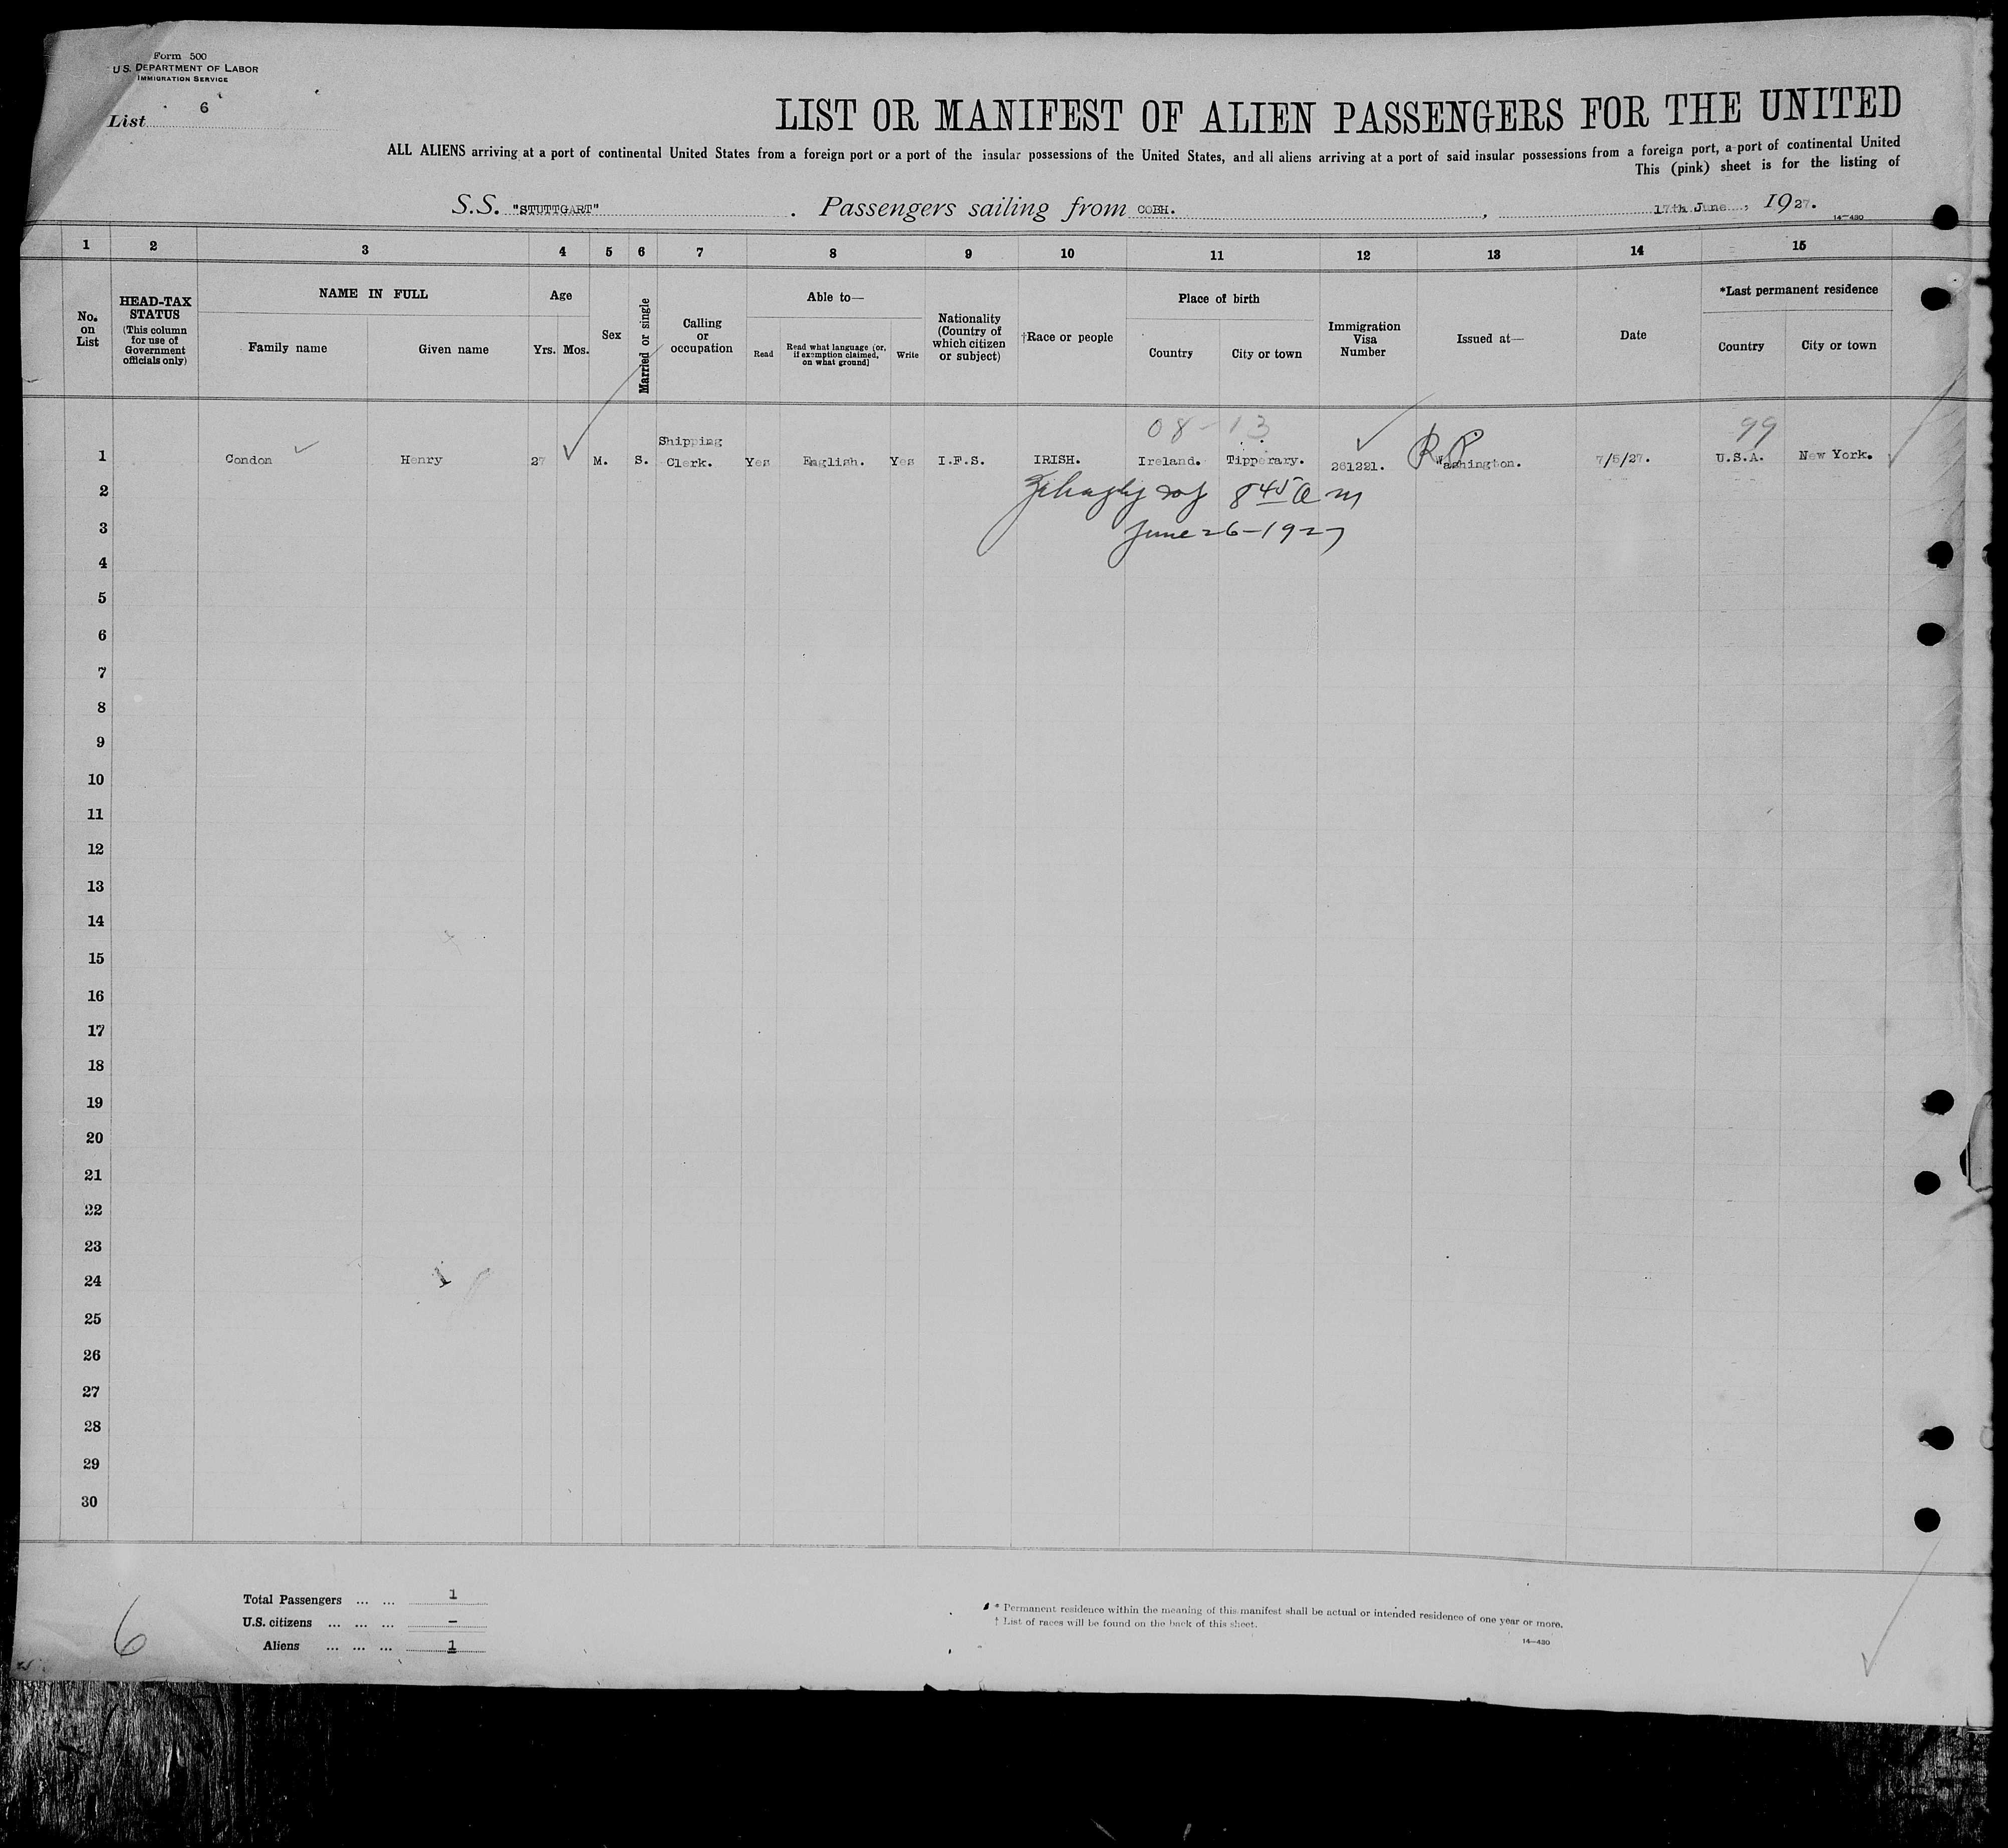 Form 500
U.S. DEPARTMENT OF LABOR
IMMIGRATION SERVICE
List 6
LIST OR MANIFEST OF ALIEN PASSENGERS FOR THE UNITED
ALL ALIENS arriving at a port of continental United States from a foreign port or a port of the insular possessions of the United States, and all aliens arriving at a port of said insular possessions from a foreign port, a port of continental United
This (pink) sheet is for the listing of
S.S. "STUTTGART" . Passengers sailing from COBH. , 17th June , 1927.
14—430
1 2 3 4 5 6 7 8 9 10 11 12 13 14 15
No. on List
HEAD-TAX STATUS
(This column for use of Government officials only)
NAME IN FULL
Family name Given name
Age
Yrs. Mos.
Sex
Married or single
Calling or occupation
Able to—
Read
Read what language [or, if exemption claimed, on what ground]
Write
Nationality (Country of which citizen or subject)
†Race or people
Place of birth
Country City or town
Immigration Visa Number
Issued at—
Date
*Last permanent residence
Country City or town
08-13 99
1 Condon Henry 27 M. S. Shipping Clerk. Yes English. Yes I.F.S. IRISH. Ireland. Tipperary. 261221. Washington. 7/5/27. U.S.A. New York.
R.P.
2
8 45 a m
3
June 26-1927
4
5
6
7
8
9
10
11
12
13
14
15
16
17
18
19
20
21
22
23
24
25
26
27
28
29
30
Total Passengers ... ... 1
U.S. citizens ... ... ... –
Aliens ... ... ... 1
6
* Permanent residence within the meaning of this manifest shall be actual or intended residence of one year or more.
† List of races will be found on the back of this sheet.
14—430